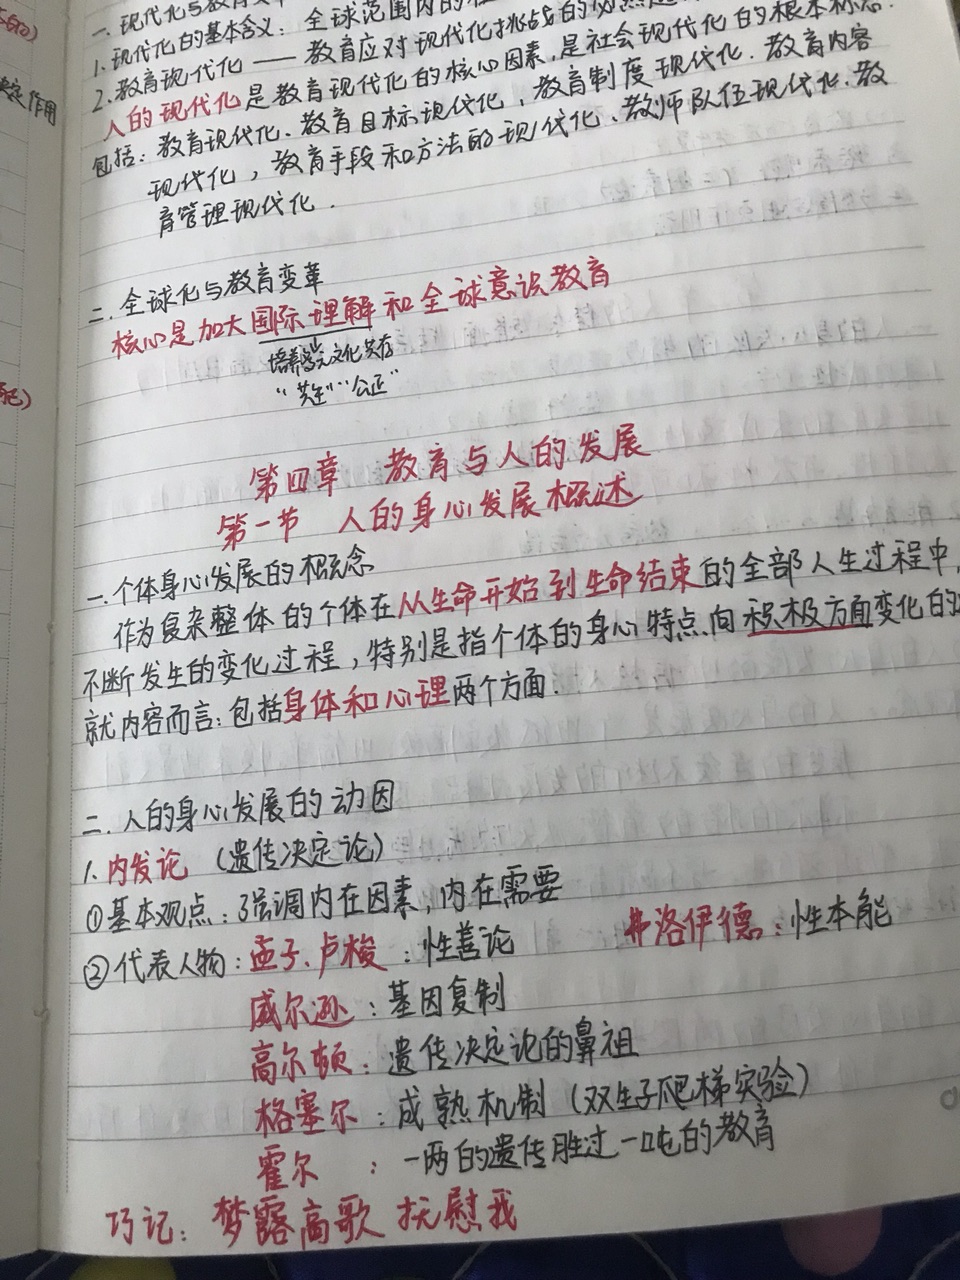 作用
一. 现代化与教育变
1. 现代化的基本含义: 全球范围内的
2. 教育现代化 —— 教育应对现代化挑战的
人的现代化是教育现代化的核心因素,是社会现代化的根本标志.
包括: 教育现代化、教育目标现代化、教育制度现代化.教育内容
现代化,教育手段和方法的现代化、教师队伍现代化.教
育管理现代化.
二. 全球化与教育变革
核心是加大国际理解和全球意识教育
培养 文化共存
“ ”“公正”
第四章 教育与人的发展
第一节 人的身心发展概述
一.个体身心发展的概念
作为复杂整体的个体在从生命开始到生命结束的全部人生过程中,
不断发生的变化过程,特别是指个体的身心特点向积极方面变化的
就内容而言:包括身体和心理两个方面.
二.人的身心发展的动因
1.内发论 (遗传决定论)
①基本观点:强调内在因素,内在需要
②代表人物:孟子.卢梭:性善论 弗洛伊德:性本能
威尔逊:基因复制
高尔顿:遗传决定论的鼻祖
格塞尔:成熟机制(双生子爬梯实验)
霍尔 :一两的遗传胜过一吨的教育
巧记:梦露高歌 抚慰我